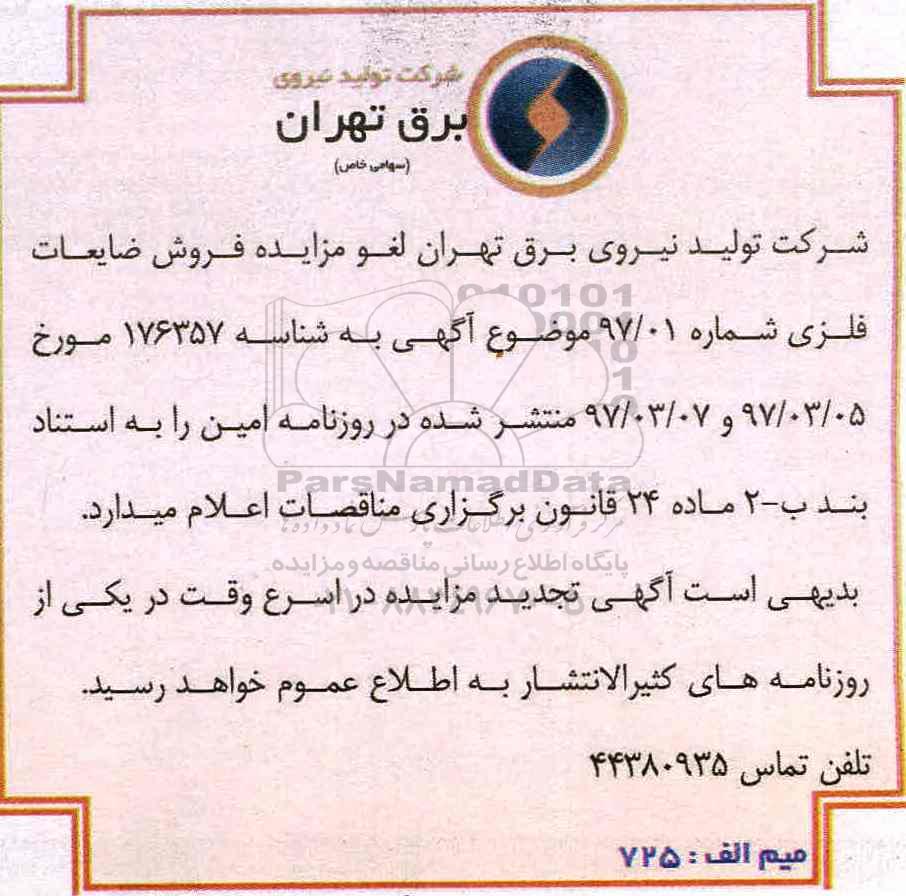 شرکت تولید نیروی
برق تهران
(سهامی خاص)
شرکت تولید نیروی برق تهران لغو مزایده فروش ضایعات
فلزی شماره ۹۷/۰۱ موضوع آگهی به شناسه ۱۷۶۳۵۷ مورخ
۹۷/۰۳/۰۵ و ۹۷/۰۳/۰۷ منتشر شده در روزنامه امین را به استناد
ParsNamadData
بند ب-۲ ماده ۲۴ قانون برگزاری مناقصات اعلام میدارد.
پایگاه اطلاع رسانی مناقصه و مزایده
بدیهی است آگهی تجدید مزایده در اسرع وقت در یکی از
روزنامه های کثیرالانتشار به اطلاع عموم خواهد رسید.
تلفن تماس ۴۴۳۸۰۹۳۵
میم الف : ۷۲۵